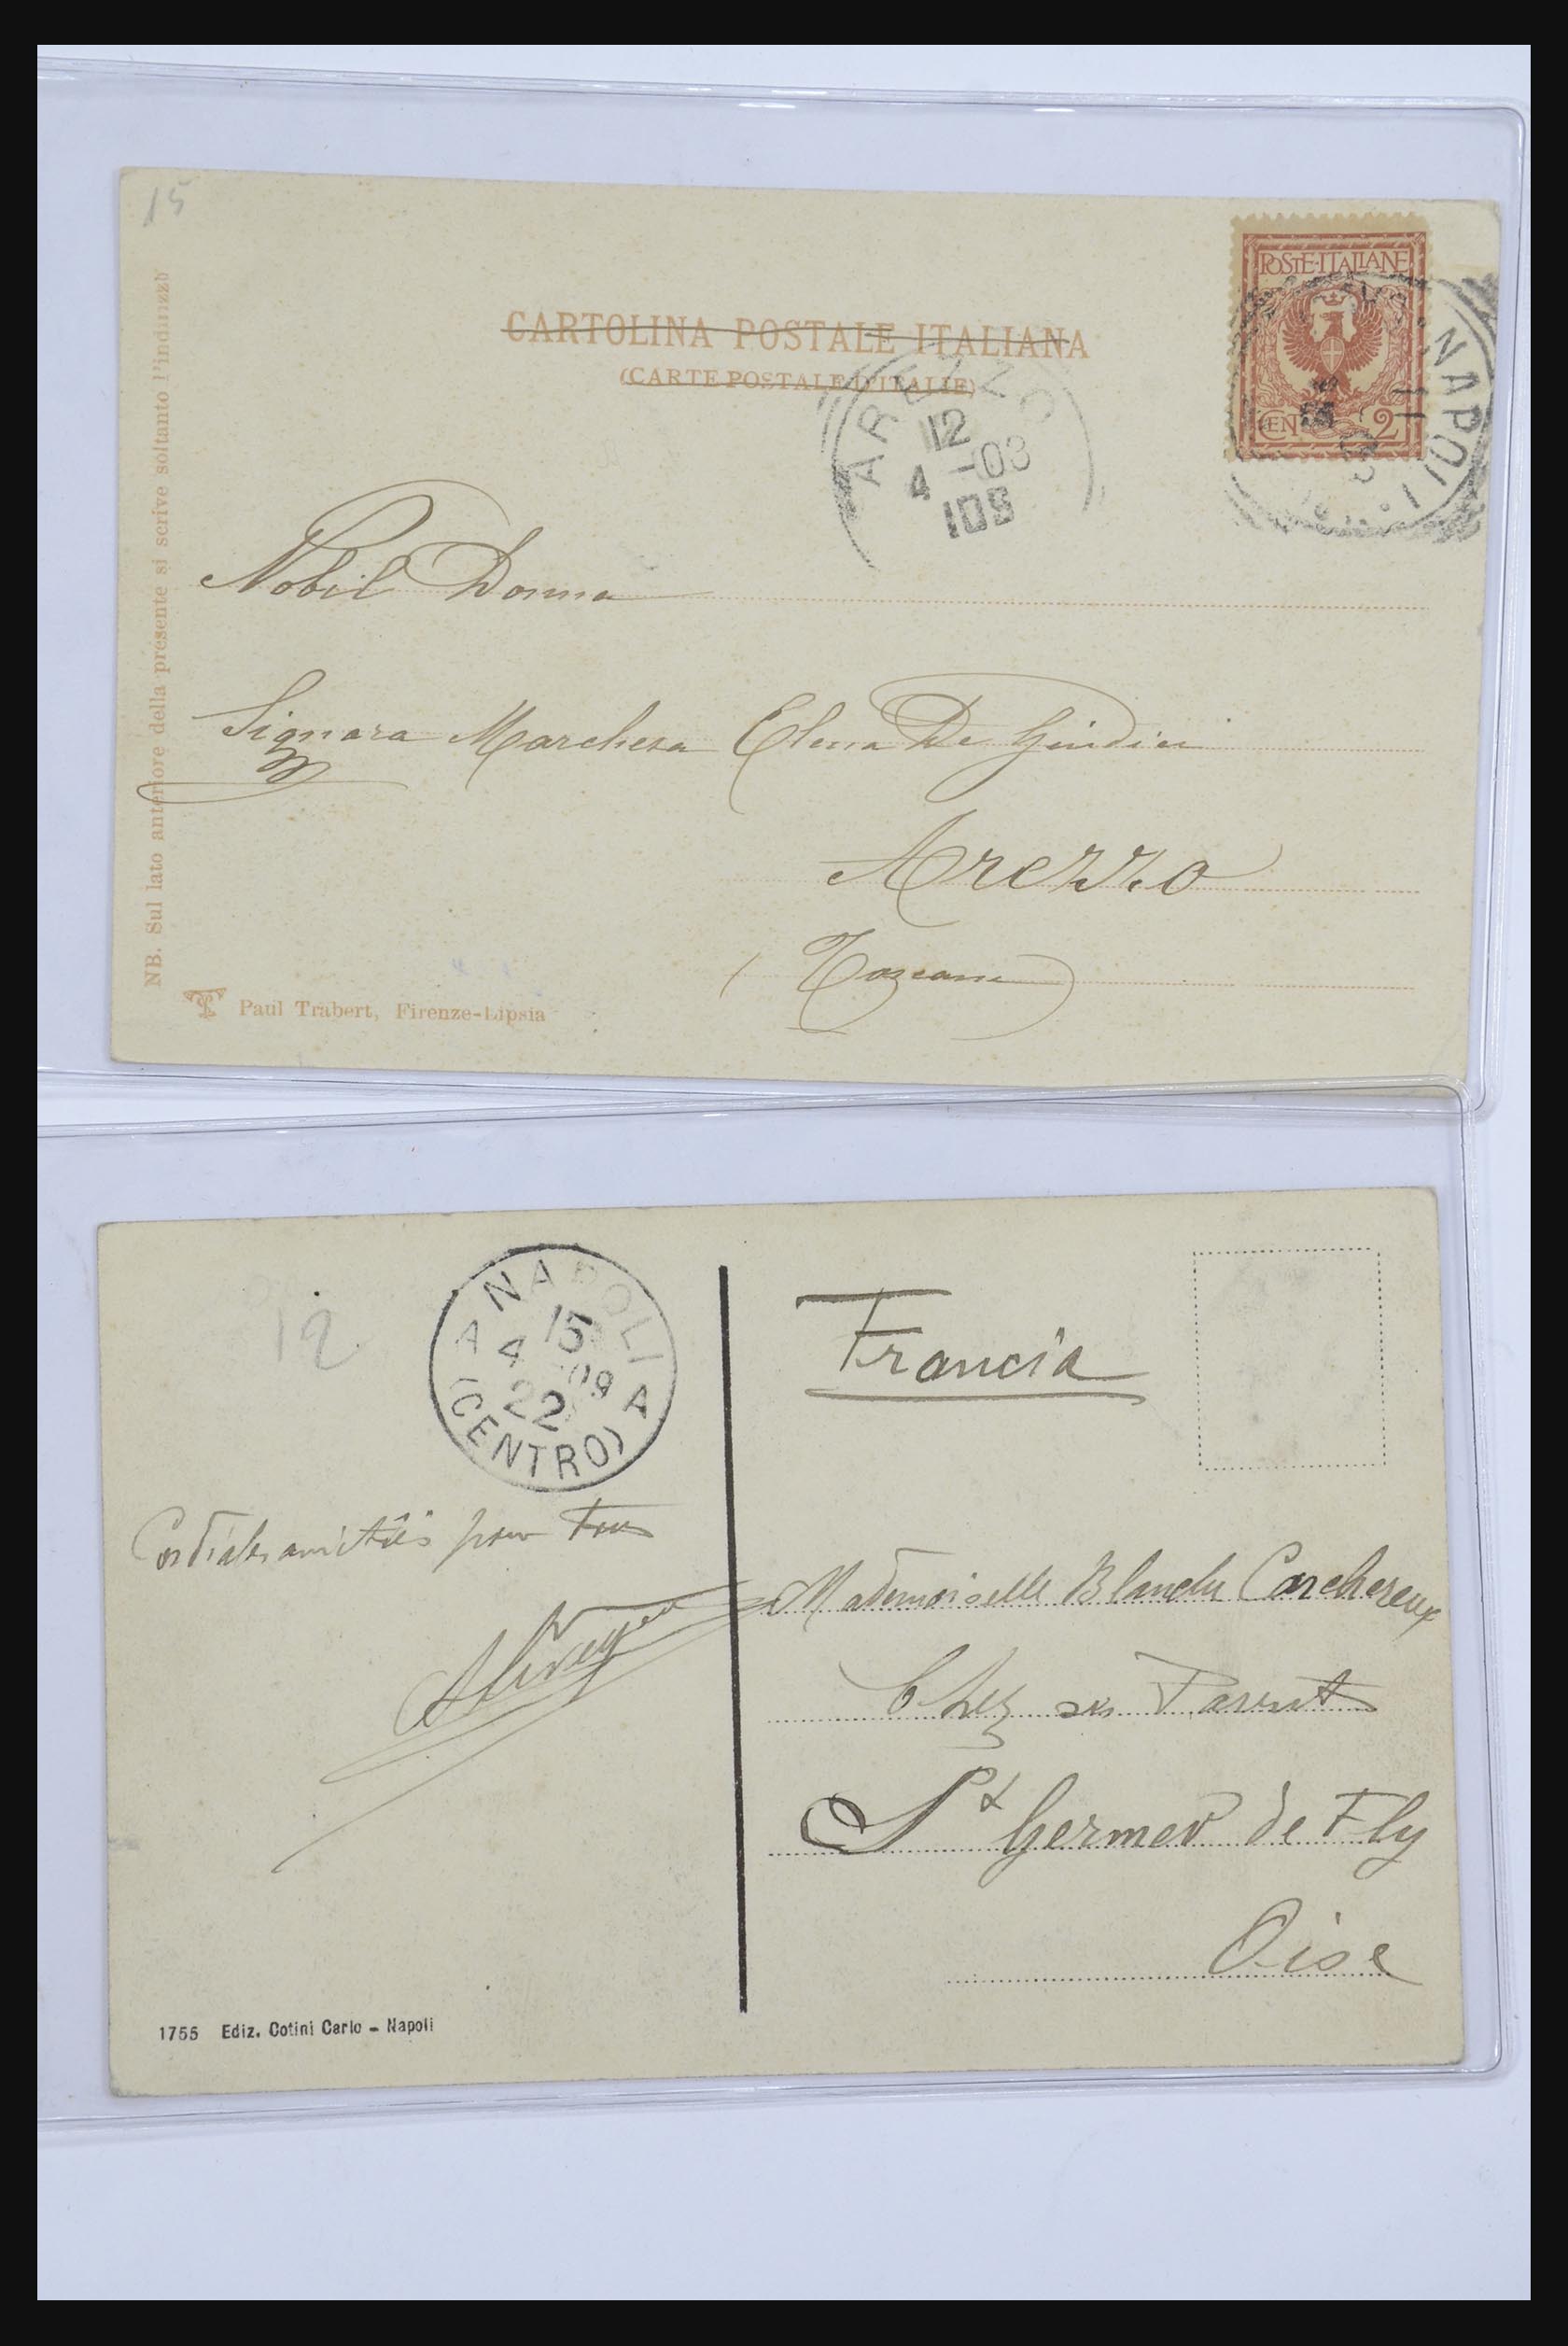 15
POSTE·ITALIANE
CEN 2
NAPOLI
11
CARTOLINA POSTALE ITALIANA
(CARTE POSTALE D'ITALIE)
AREZZO
12
4 -03
10S
NB. Sul lato anteriore della presente si scrive soltanto l'indirizzo
Nobil Donna
Signora Marchesa Elena De Giudici
Arezzo
(Toscana)
Paul Trabert, Firenze-Lipsia
12
NAPOLI
A 15 A
4 -09
22
(CENTRO)
Francia
Cordiales amitiés pour Tous
Mademoiselle Blanche Carchereux
Chez ses Parents
St Germer de Fly
Oise
1755 Ediz. Cotini Carlo - Napoli